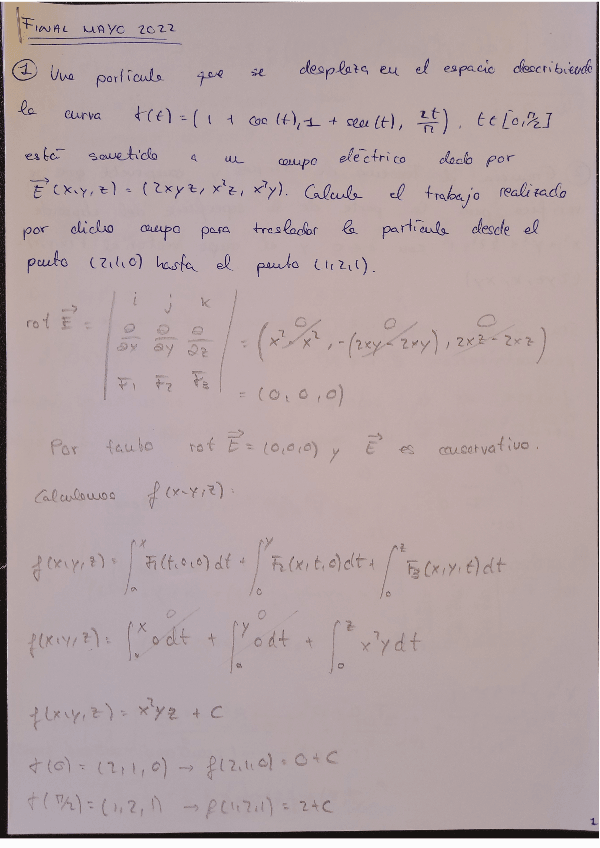 FINAL MAYO 2022
① Una partícula que se desplaza en el espacio describiendo
la curva r(t) = (1 + cos(t), 1 + sen(t), 2t/π), t ∈ [0, π/2]
está sometida a un campo eléctrico dado por
E⃗(x,y,z) = (2xyz, x²z, x²y). Calcule el trabajo realizado
por dicho campo para trasladar la partícula desde el
punto (2,1,0) hasta el punto (1,2,1).
rot E⃗ = | i j k ; ∂/∂x ∂/∂y ∂/∂z ; F₁ F₂ F₃ | = (x² - x², -(2xy - 2xy), 2xz - 2xz)
= (0, 0, 0)
Por tanto rot E⃗ = (0,0,0) y E⃗ es conservativo.
Calculemos f(x,y,z):
f(x,y,z) = ∫₀ˣ F₁(t,0,0)dt + ∫₀ʸ F₂(x,t,0)dt + ∫₀ᶻ F₃(x,y,t)dt
f(x,y,z) = ∫₀ˣ 0dt + ∫₀ʸ 0dt + ∫₀ᶻ x²y dt
f(x,y,z) = x²yz + C
r(0) = (2,1,0) → f(2,1,0) = 0 + C
r(π/2) = (1,2,1) → f(1,2,1) = 2 + C
1